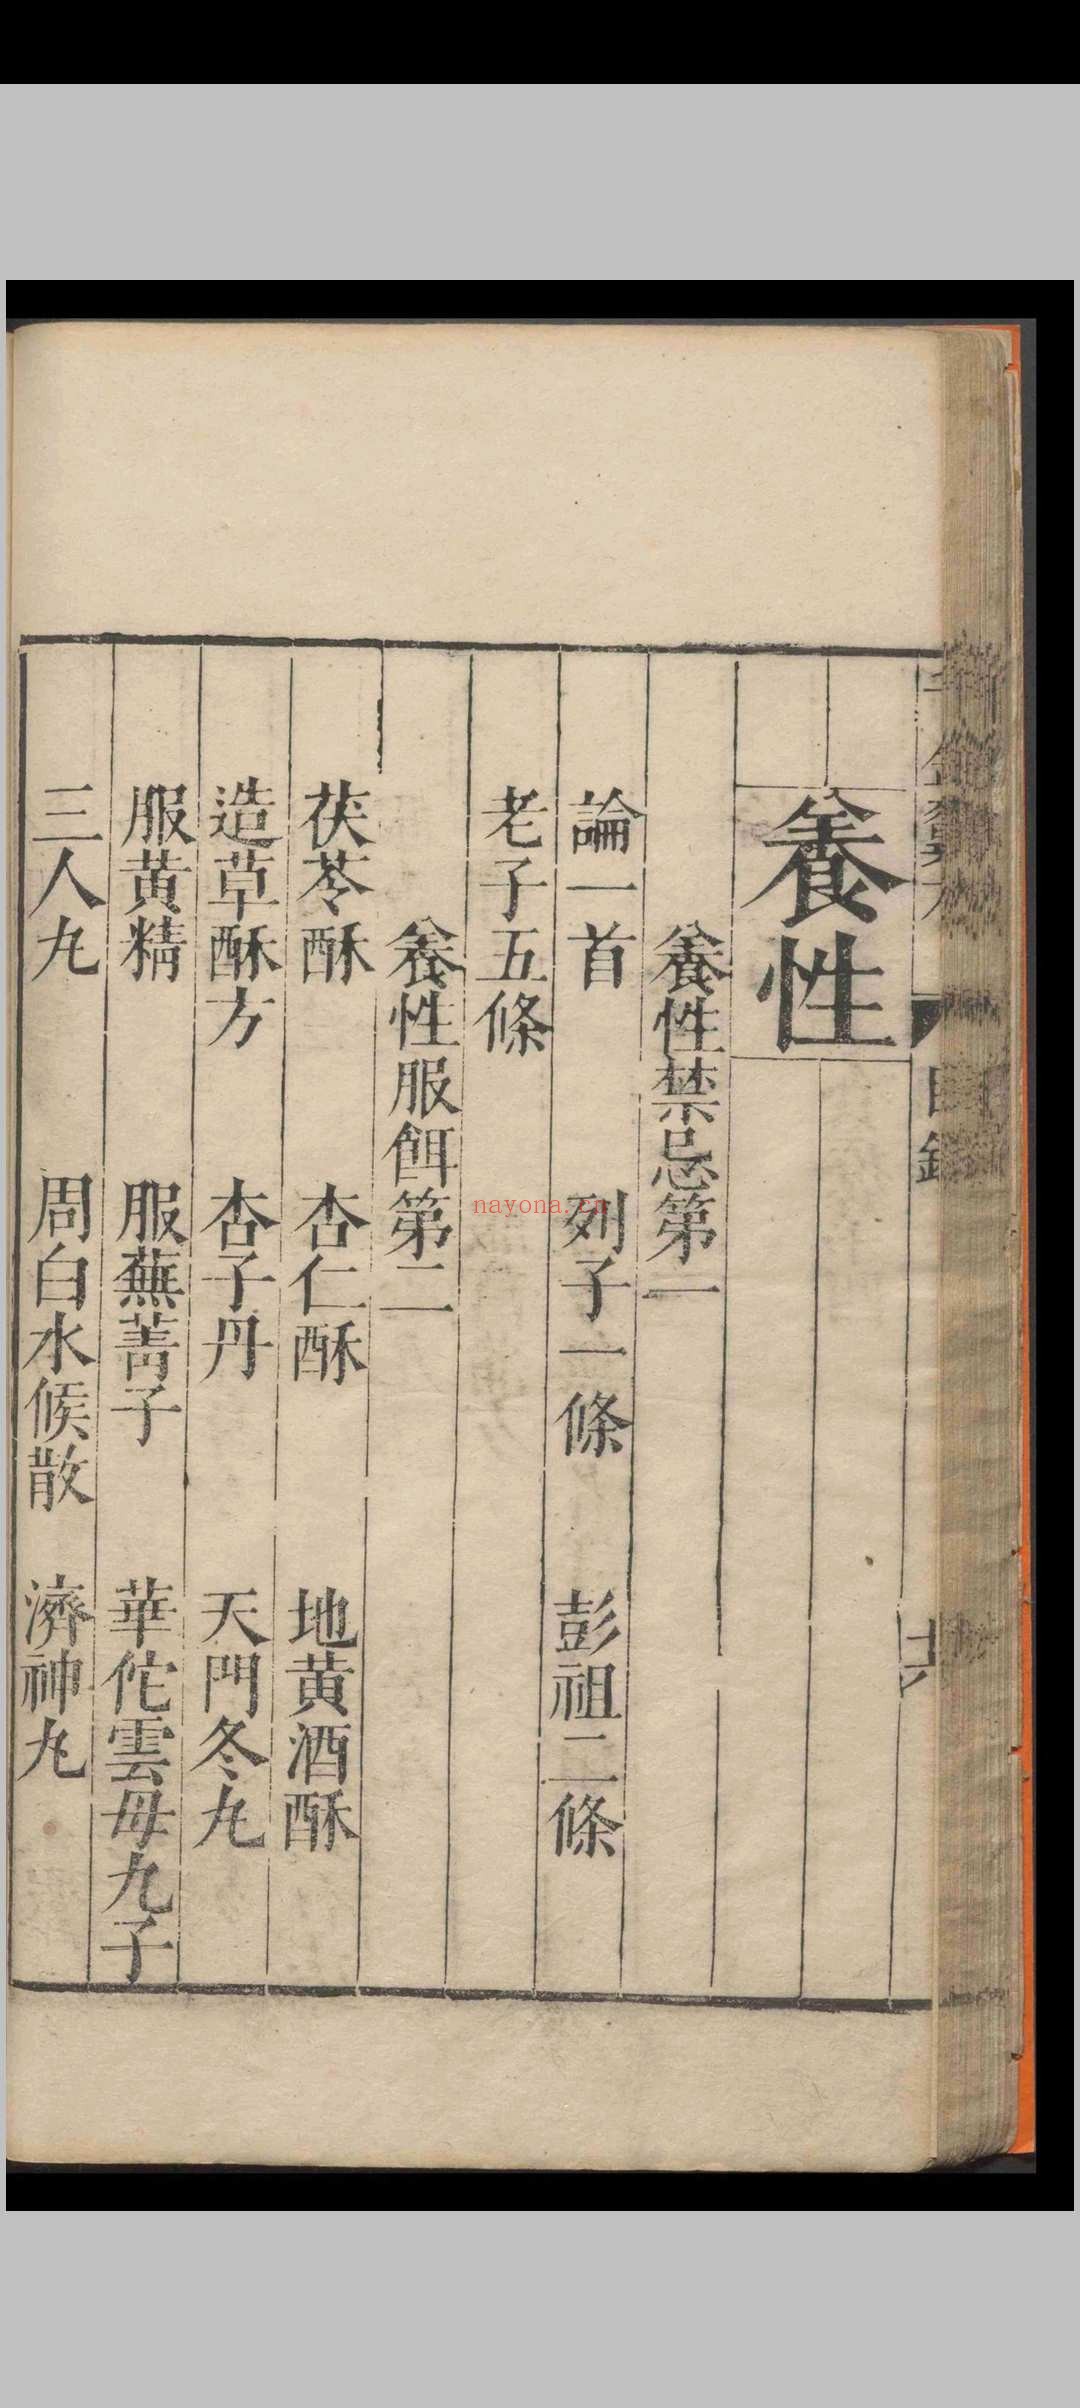 養性
養性禁忌第一
論一首 列子一條 彭祖二條
老子五條
養性服餌第二
茯苓酥 杏仁酥 地黄酒酥
造草酥方 杏子丹 天門冬丸
服黄精 服蕪菁子 華佗雲母九子
三人九 周白水候散 濟神丸
nayona.cn